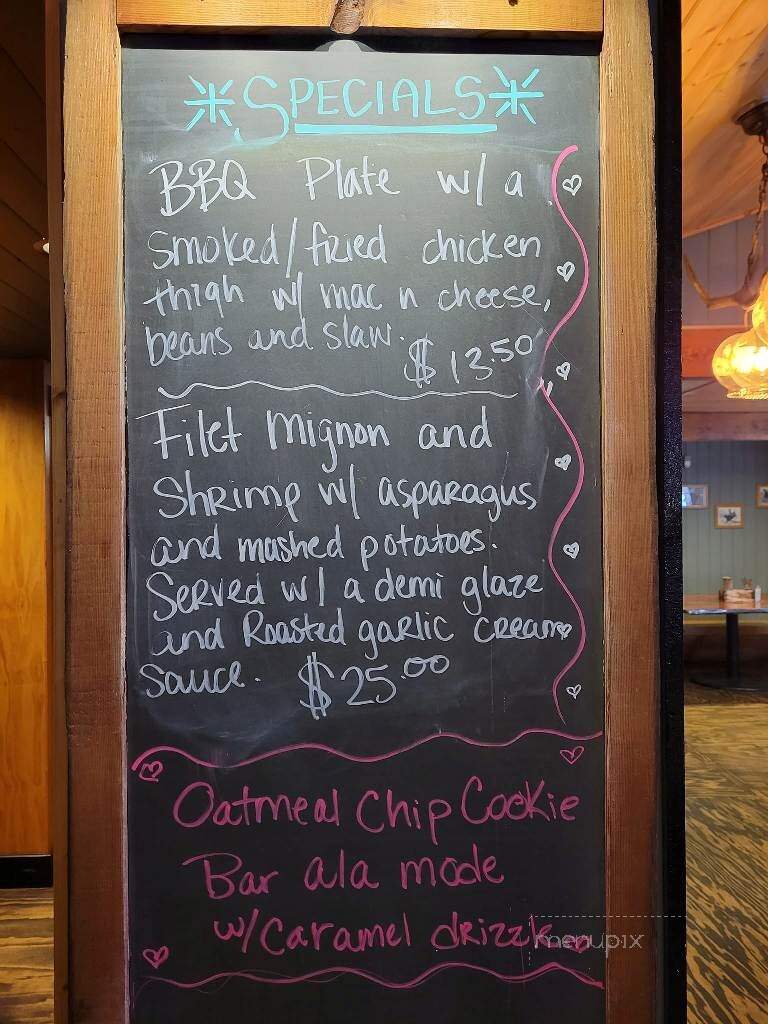 SPECIALS
BBQ Plate w/ a
Smoked/fried chicken
thigh w/ mac n cheese,
beans and slaw.
$13.50
Filet Mignon and
Shrimp w/ asparagus
and mashed potatoes.
Served w/ a demi glaze
and Roasted garlic cream
sauce. $25.00
Oatmeal Chip Cookie
Bar ala mode
w/ Caramel drizzle
menupix